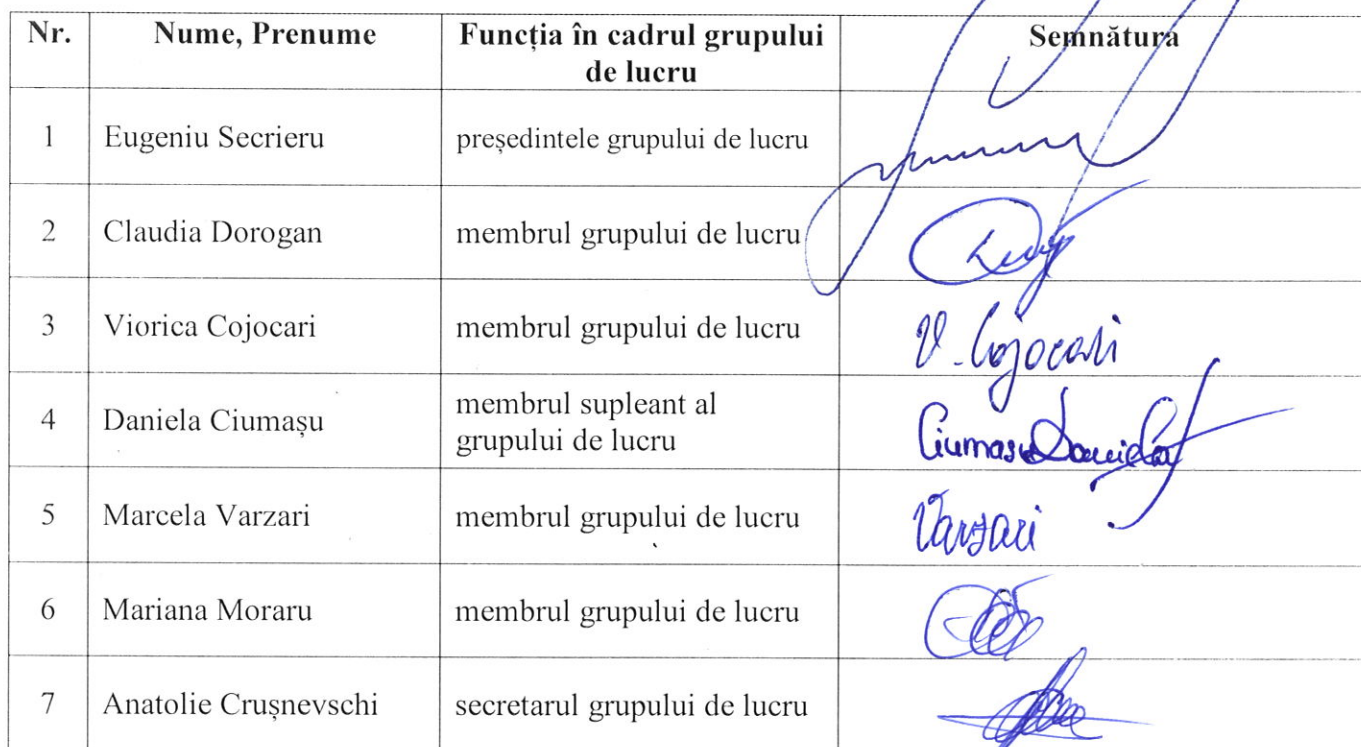 Nr. Nume, Prenume Funcția în cadrul grupului de lucru Semnătura
1 Eugeniu Secrieru președintele grupului de lucru
2 Claudia Dorogan membrul grupului de lucru
3 Viorica Cojocari membrul grupului de lucru V. Cojocari
4 Daniela Ciumașu membrul supleant al grupului de lucru Ciumașu Daniela
5 Marcela Varzari membrul grupului de lucru Varzari
6 Mariana Moraru membrul grupului de lucru
7 Anatolie Crușnevschi secretarul grupului de lucru